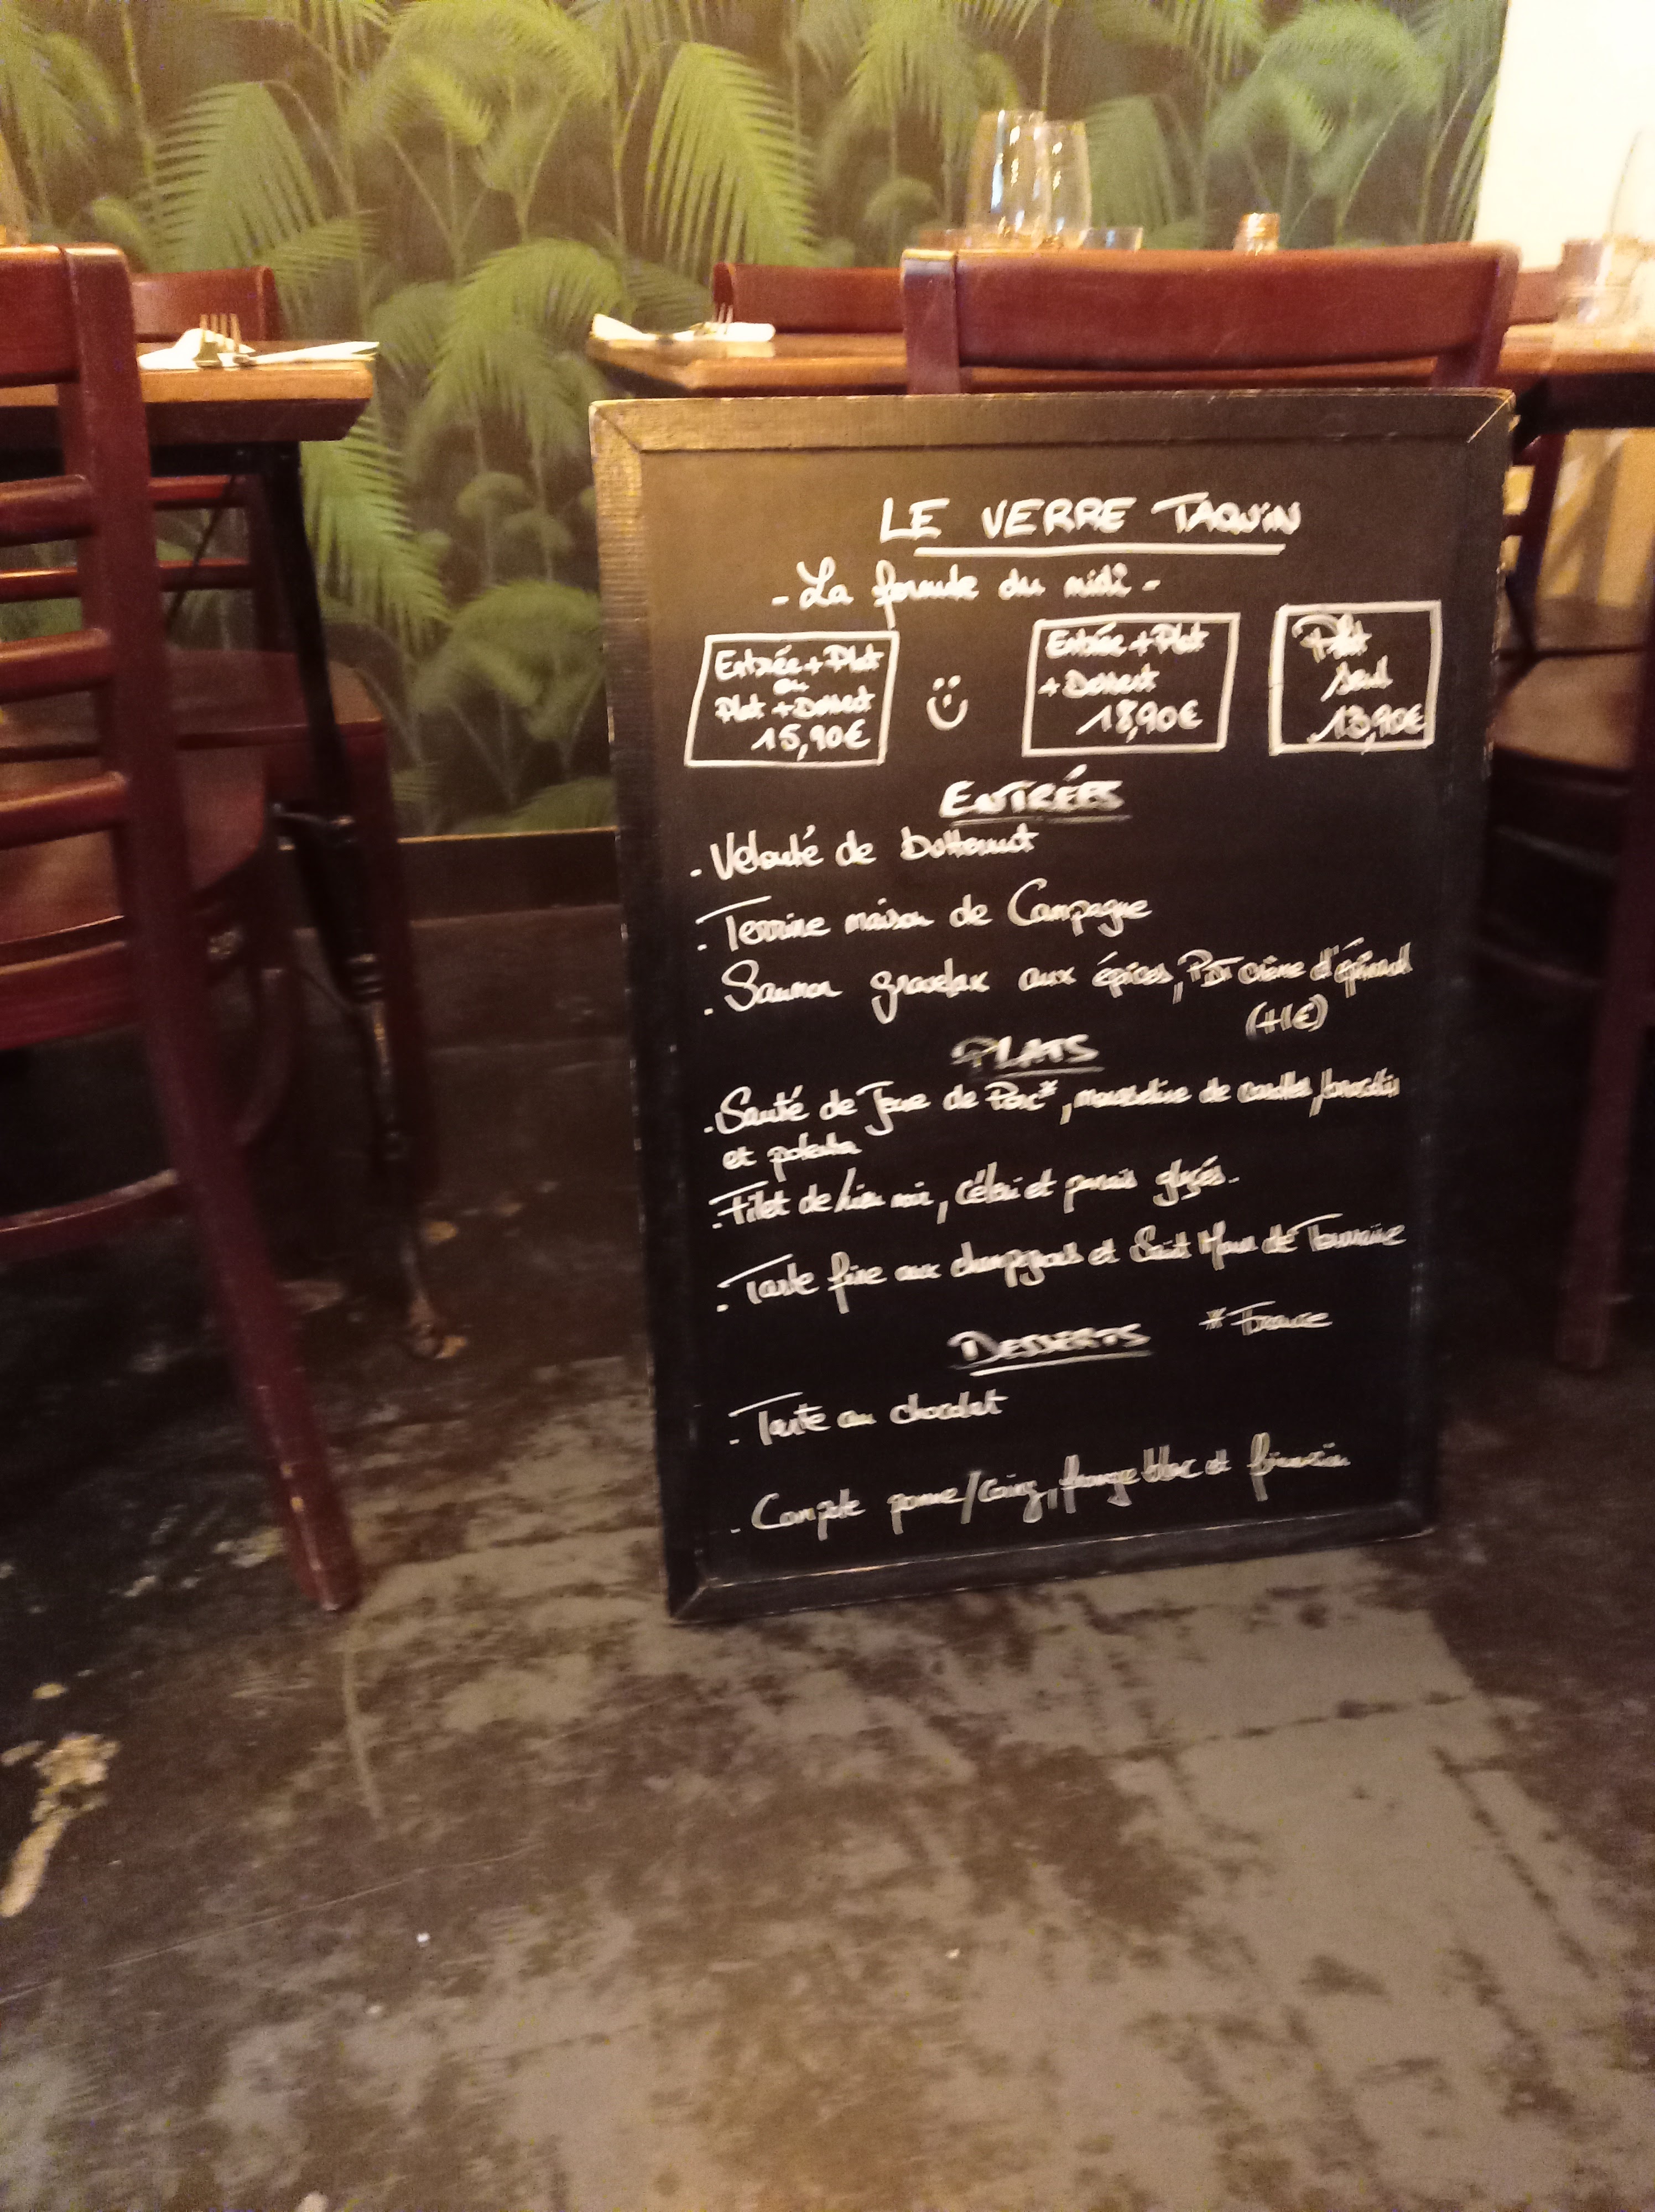 LE VERRE TAQUIN
- La formule du midi -
Entrée + Plat
ou
Plat + Dessert
15,90€
Entrée + Plat
+ Dessert
18,90€
Plat
seul
13,90€
ENTRÉES
. Velouté de butternut
. Terrine maison de Campagne
. Saumon gravelax aux épices, crème d'épinard
(+1€)
PLATS
. Sauté de Joue de Porc*, mousseline de carottes, brocolis
et polenta
. Filet de lieu noir, céleri et panais glaçés.
. Tarte fine aux champignons et Saint Maur de Touraine
* France
DESSERTS
. Tarte au chocolat
. Compote pomme/coing, fromage blanc et financier